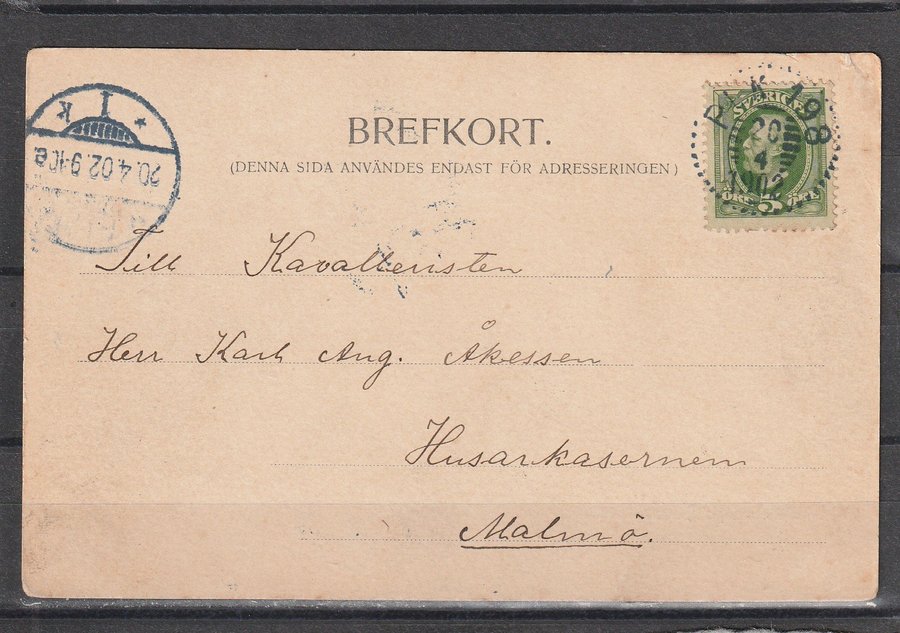 BREFKORT.
(DENNA SIDA ANVÄNDES ENDAST FÖR ADRESSERINGEN)
PLK 198
20
4
1902
SVERIGE
ÖRE 5 ÖRE
K I *
20.4.02.9-10
Till Kavalleristen
Herr Karl Aug. Åkesson
Husarkasernen
Malmö.